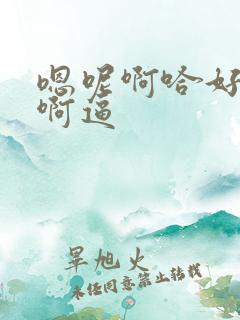 嗯呢啊哈好
啊逼
旱旭火
未经同意禁止转载